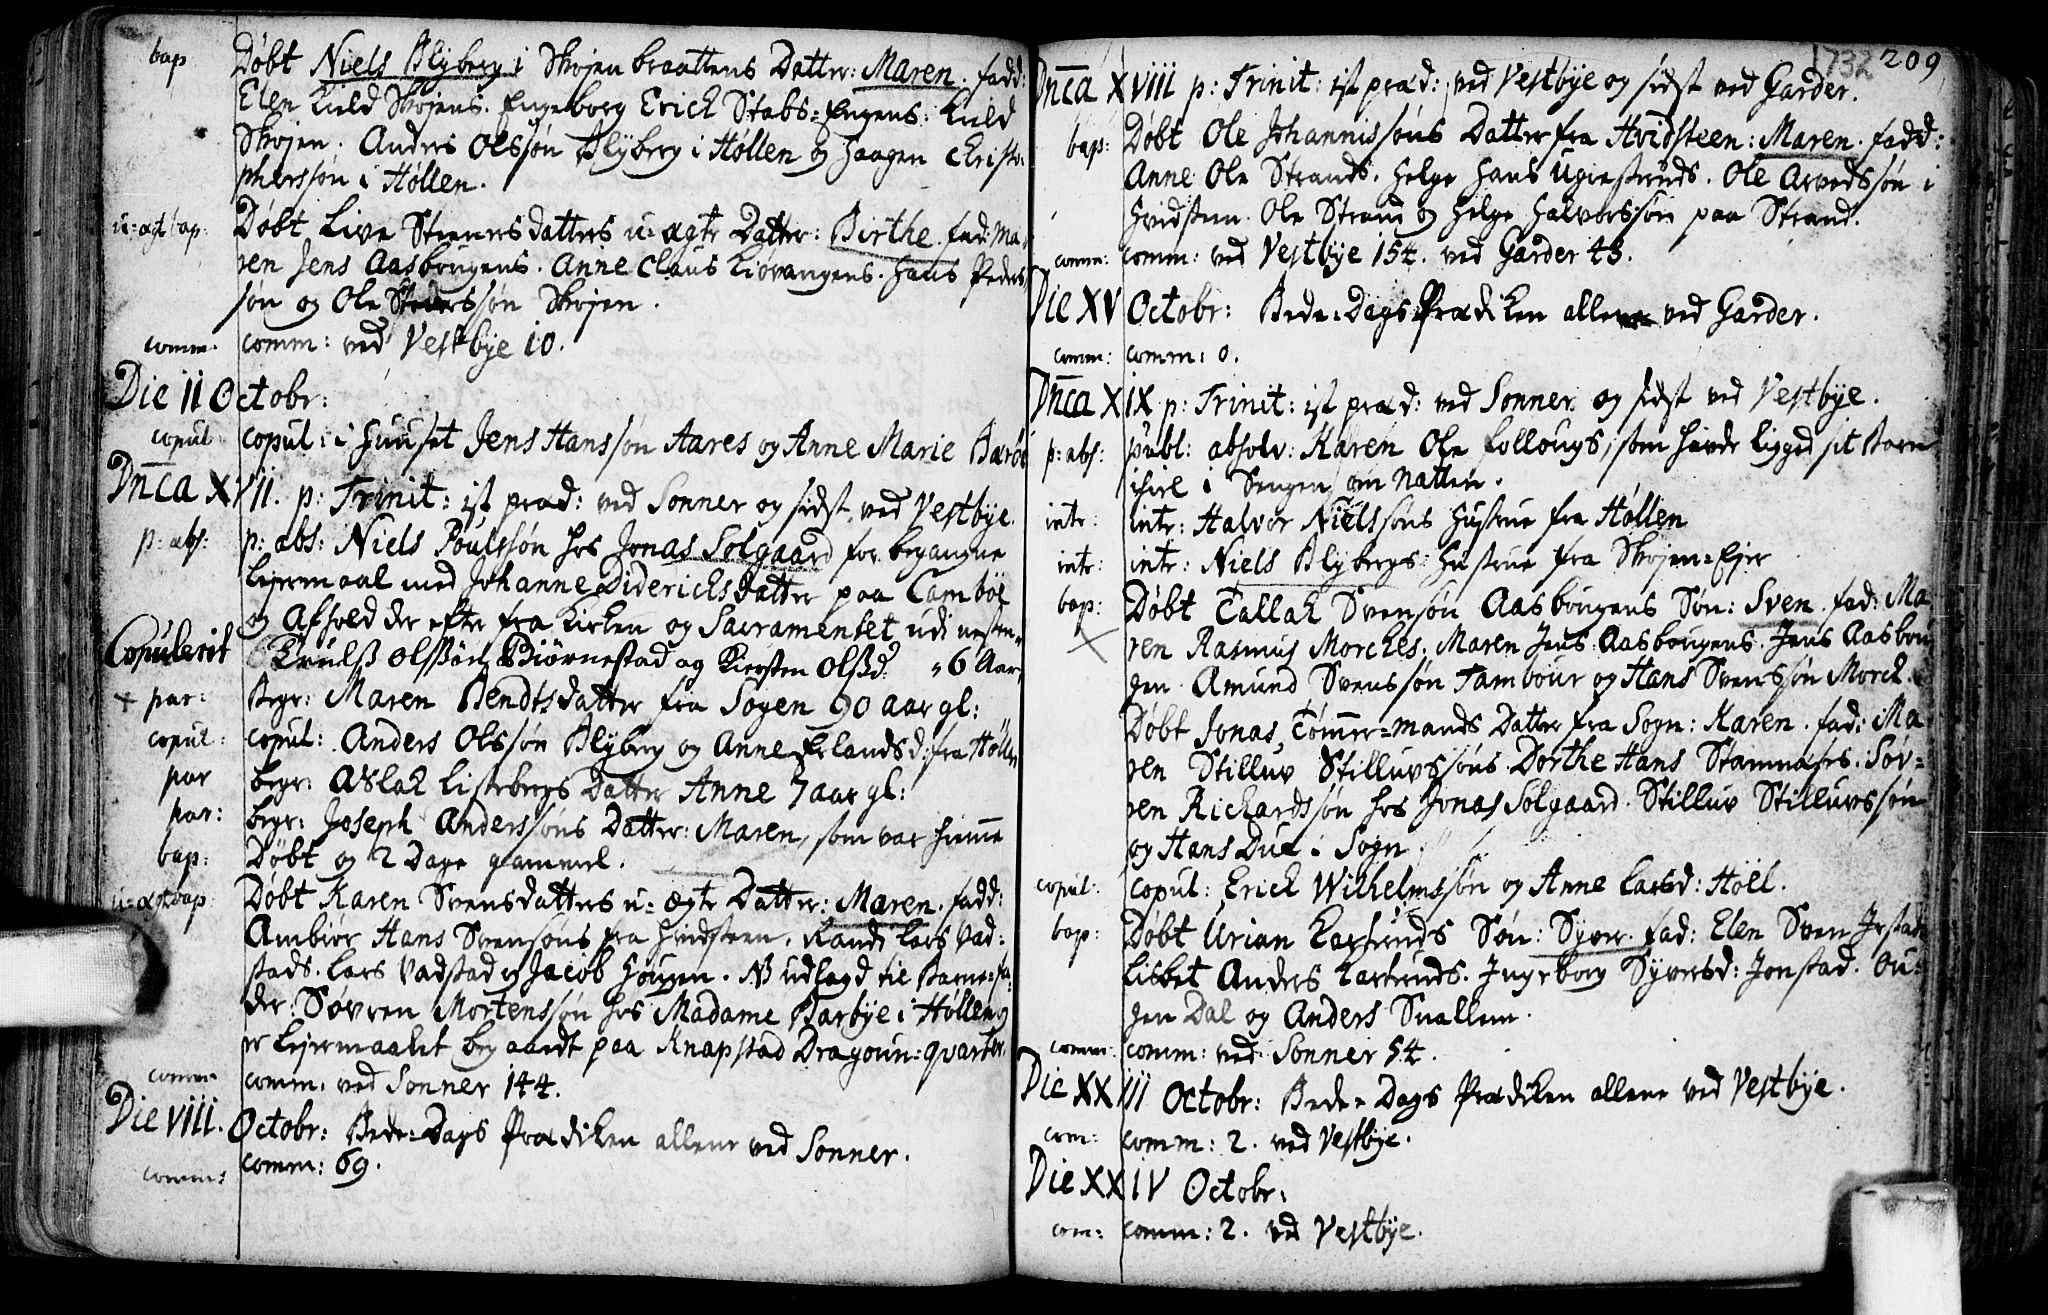 bap Døbt Niels Blÿberg i Skojen braattens Datter: Maren. fadd:
Elen Kield Skojens. Engeborg Erick Stabs=Engens: Kield
Skojen. Anders Olssøn Blÿberg i Høllen og Haagen Christo-
pherssøn i Høllen.
u=ægt bap: Døbt Live Steenersdatters u=ægte Datter: Birthe. fad: Ma
ren Jens Aasbougens. Anne Claus Kiøvangens. Hans Peders
søn og Ole søn Skojen.
comm. comm: ved Vestbÿe 10.
Die II Octobr:
copul: copul: i Huuset Jens Hanssøn Aares og Anne Marie Barøe
Dnica XVII. p: Trinit: ist præd: ved Sonner og sidst ved Vestbÿe.
p: abs: p: abs: Niels Poulssøn hos Jonas Solgaard for begangne
Leiermaal med Johanne Diderichsdatter paa Cambøe
og Afhold der efter fra Kirken og Sacramentet udi nesten
Copulerit Truels Olssøn Biørnestad og Kiersten Olssd: 6 Aar.
+ par: Begr: Maren Bendtsdatter fra Sogen 90 aar gl:
copul: copul: Anders Olssøn Blÿberg og Anne Erlandsd: fra Høllen
par begr: Aslak Listebergs Datter Anne 7 aar gl:
par: begr: Joseph Anderssøns Datter: Maren, som var hiemme
bap: Døbt og 2 Dage gammel.
u=ægt bap: Døbt Karen Svensdatters u=ægte Datter: Maren. fadd:
Ambiør Hans Svensøns fra Hvidsteen. Randi Lars Vad=
stads. Lars Vadstad og Jacob Hougen. NB udlagd til Barne=fa-
der: Søvren Mortenssøn hos Madame Barbÿe i Høllen og
er Leiermaalet begaaedt paa Knapstad Dragoun=qvarter.
comm: comm: ved Sonner 144.
Die VIII. Octobr: Bede=Dags Prædiken allene ved Sonner.
comm: comm: 69.
1732 209
Dnica XVIII p: Trinit: ist præd: ved Vestbÿe og sidst ved Garder.
bap: Døbt Ole Johannissøns Datter fra Hvidsteen: Maren. fadd:
Anne Ole Strands. Helge Hans Ugiestruds. Ole Arvedssøn i
Hvidsteen. Ole Strand og Helge Halvorssøn paa Strand.
comm: comm: ved Vestbÿe 154. ved Garder 43.
Die XV Octobr: Bede=Dags Prædiken allene ved Garder.
comm: comm: 0.
Dnica XIX p: Trinit: ist præd: ved Sonner og sidst ved Vestbÿe.
p: abs: publ: absolv: Karen Ole Follougs, som hafde ligged sit Barn
ihiel i Sengen om Natten.
intr: intr: Halvor Nielssøns Hustrue fra Høllen
intr: intr: Niels Blÿbergs Hustrue fra Skojen=Ejer
bap: Døbt Tallak Svensøn Aasbougens Søn: Sven. fad: Ma
ren Rasmus Morches. Maren Jens Aasbougens. Jens Aasbou
gen. Amund Svenssøn Tambour og Hans Svenssøn Morck.
Døbt Jonas Tømmer=mands Datter fra Sogn: Karen. fad: Ma
ren Stilluv Stilluvssøns. Dorthe Hans Stamnæses. Søv=
ren Richardssøn hos Jonas Solgaard. Stilluv Stilluvssøn
og Hans Due i Sogn.
copul: copul: Erick Wilhelmssøn og Anne Larsd: Hoel.
bap: Døbt Urian Karlsruds Søn: Syver. fad: Elen Sven Irstads
Lisbet Anders Karlsruds. Ingeborg Syversd: Jonstad. Ou=
gen Dal og Anders Snallem.
comm: comm: ved Sonner 54.
Die XXIII Octobr: Bede=Dags Prædiken allene ved Vestbÿe.
com: comm: 2. ved Vestbÿe.
Die XXIV Octobr:
com: comm: 2. ved Vestbÿe.